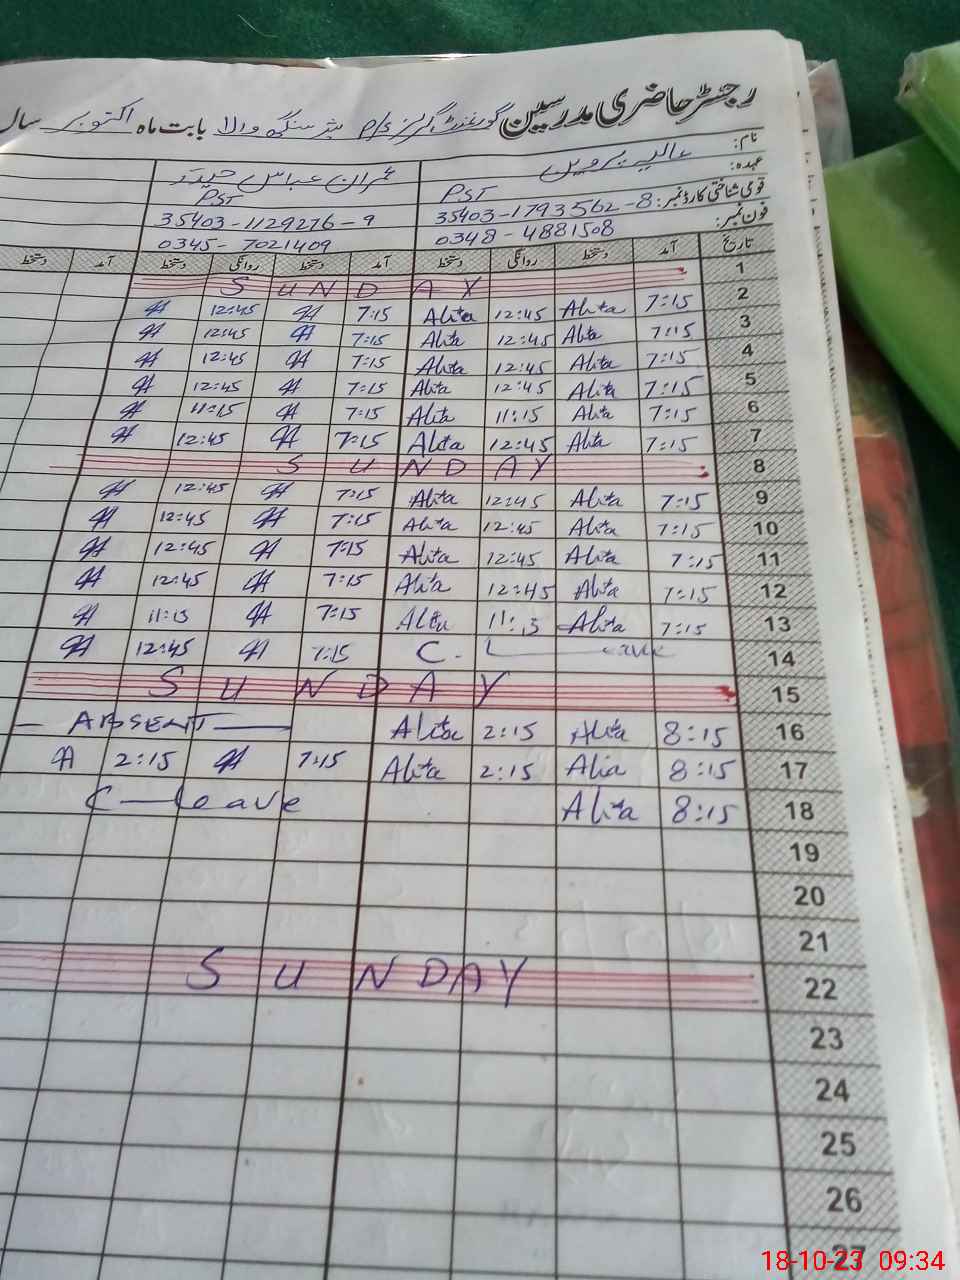 رجسٹر حاضری مدرسین گورنمنٹ گرلز P/S شیر سنگھ والا بابت ماہ اکتوبر سال
نام: عالیہ پروین عمران عباس حیدر
عہدہ: PST PST
قومی شناختی کارڈ نمبر: 35403-1793562-8 35403-1129276-9
فون نمبر: 0348-4881508 0345-7021409
تاریخ آمد دستخط روانگی دستخط آمد دستخط روانگی دستخط آمد دستخط
1 SUNDAY
2 7:15 Alita 12:45 Alita 7:15 12:45
3 7:15 Alita 12:45 Alita 7:15 12:45
4 7:15 Alita 12:45 Alita 7:15 12:45
5 7:15 Alita 12:45 Alita 7:15 12:45
6 7:15 Alita 11:15 Alita 7:15 11:15
7 7:15 Alita 12:45 Alita 7:15 12:45
8 SUNDAY
9 7:15 Alita 12:45 Alita 7:15 12:45
10 7:15 Alita 12:45 Alita 7:15 12:45
11 7:15 Alita 12:45 Alita 7:15 12:45
12 7:15 Alita 12:45 Alita 7:15 12:45
13 7:15 Alita 11:15 Alita 7:15 11:15
14 C. Leave 7:15 12:45
15 SUNDAY
16 8:15 Alita 2:15 Alita ABSENT
17 8:15 Alia 2:15 Alita 7:15 2:15
18 8:15 Alita C-Leave
19
20
21
22 SUNDAY
23
24
25
26
27
18-10-23 09:34